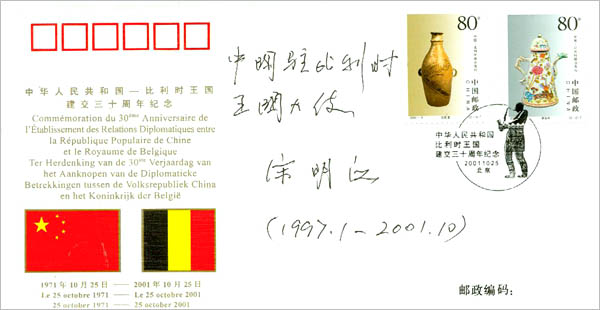 中华人民共和国—比利时王国
建立三十周年纪念
Commémoration du 30ème Anniversaire de
l'Établissement des Relations Diplomatiques entre
la République Populaire de Chine
et le Royaume de Belgique
Ter Herdenking van de 30ste Verjaardag van
het Aanknopen van de Diplomatieke
Betrekkingen tussen de Volksrepubliek China
en het Koninkrijk der België
1971 年 10 月 25 日 —— 2001 年 10 月 25 日
Le 25 octobre 1971 —— Le 25 octobre 2001
25 october 1971 —— 25 october 2001
中国驻比利时
王国大使
宋明江
(1997.1–2001.10)
80分
中国邮政
80分
中国邮政
中华人民共和国
比利时王国
建立三十周年纪念
20011025
北京
邮政编码: